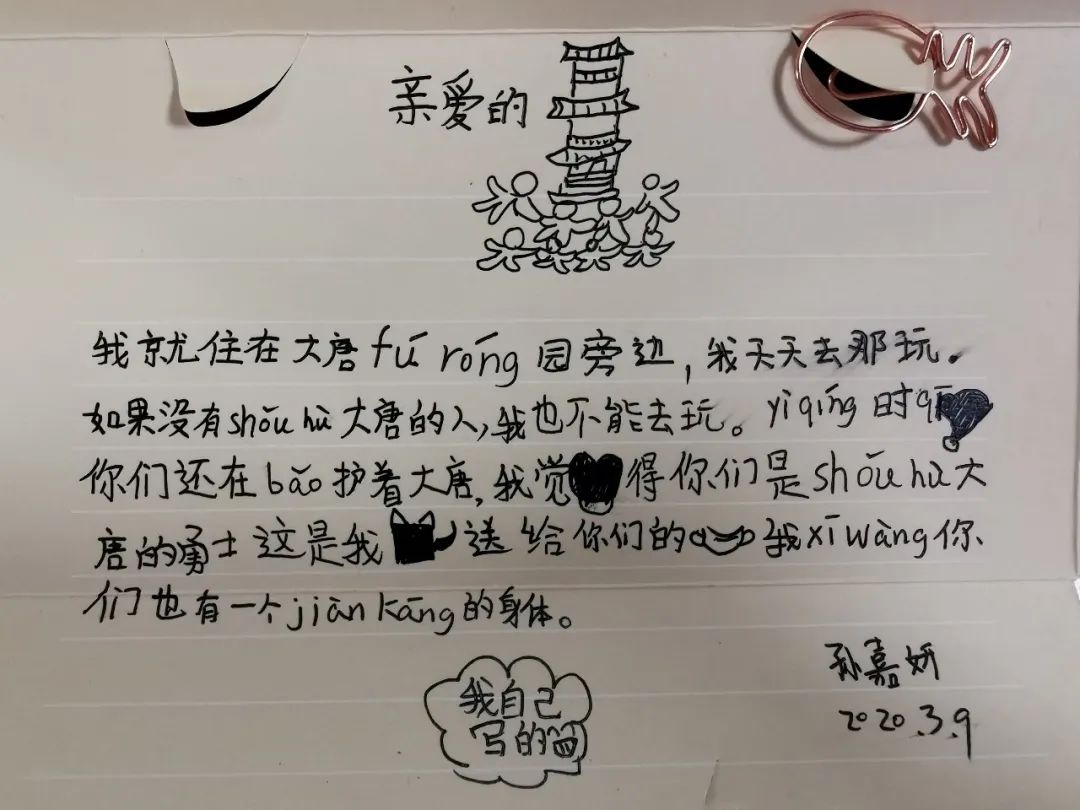 亲爱的
我就住在大唐fú róng园旁边,我天天去那玩。
如果没有shǒu hù大唐的人,我也不能去玩。yì qíng时qī
你们还在bǎo护着大唐,我觉得你们是shǒu hù大
唐的勇士这是我送给你们的我xī wàng你
们也有一个jiàn kāng的身体。
我自己
写的
孙嘉妍
2020.3.9